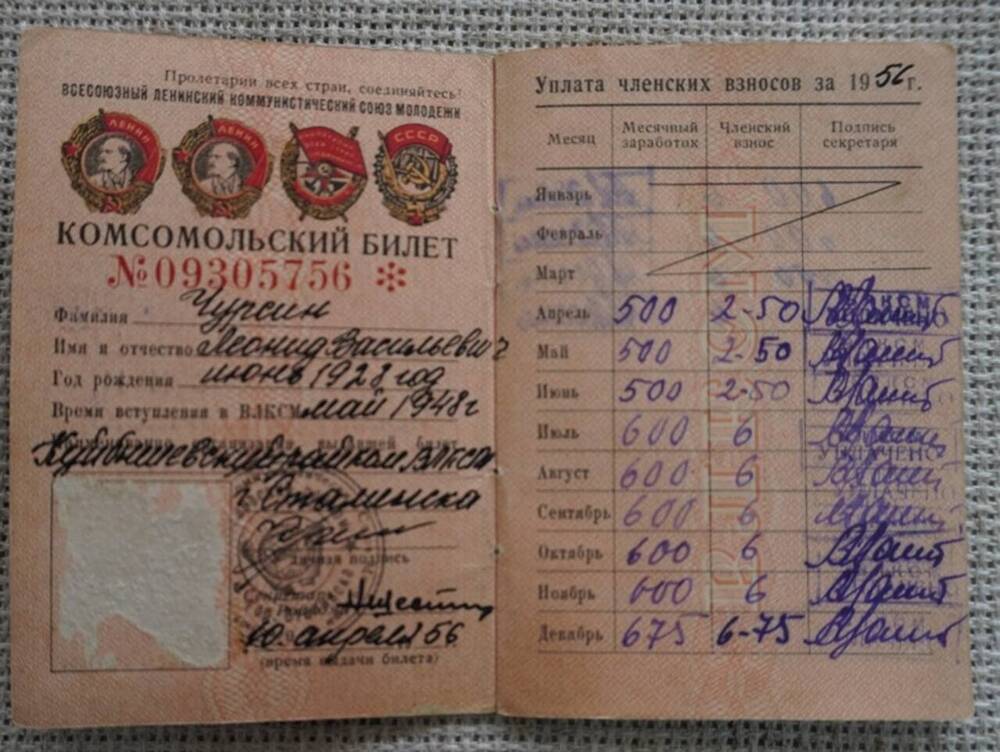 Пролетарии всех стран, соединяйтесь!
ВСЕСОЮЗНЫЙ ЛЕНИНСКИЙ КОММУНИСТИЧЕСКИЙ СОЮЗ МОЛОДЕЖИ
ЛЕНИН ЛЕНИН СССР
КОМСОМОЛЬСКИЙ БИЛЕТ
№ 09305756 *
Фамилия Чурсин
Имя и отчество Леонид Васильевич
Год рождения июнь 1928 год
Время вступления в ВЛКСМ май 1948 г
Куйбышевский райком ВЛКСМ
г. Сталинска
личная подпись
10 апреля 56
(время выдачи билета)
Уплата членских взносов за 1956 г.
Месяц Месячный заработок Членский взнос Подпись секретаря
Январь
Февраль
Март
Апрель 500 2-50
Май 500 2-50
Июнь 500 2-50
Июль 600 6
Август 600 6
Сентябрь 600 6
Октябрь 600 6
Ноябрь 600 6
Декабрь 675 6-75